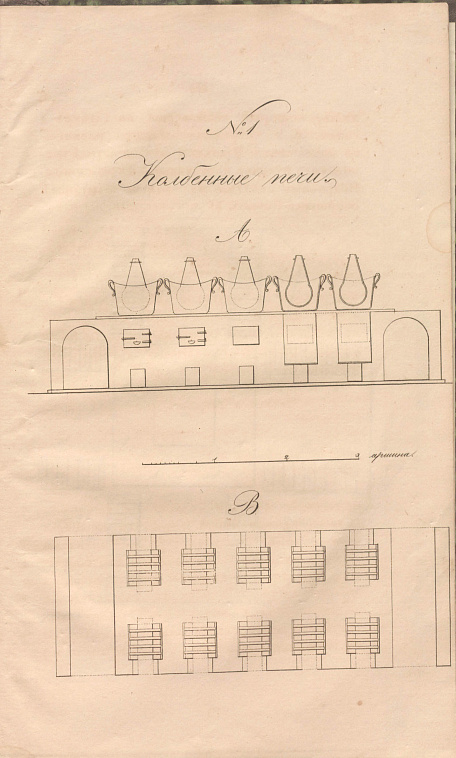 № 1
Колбенные печи.
А.
1 2 3 аршина
В